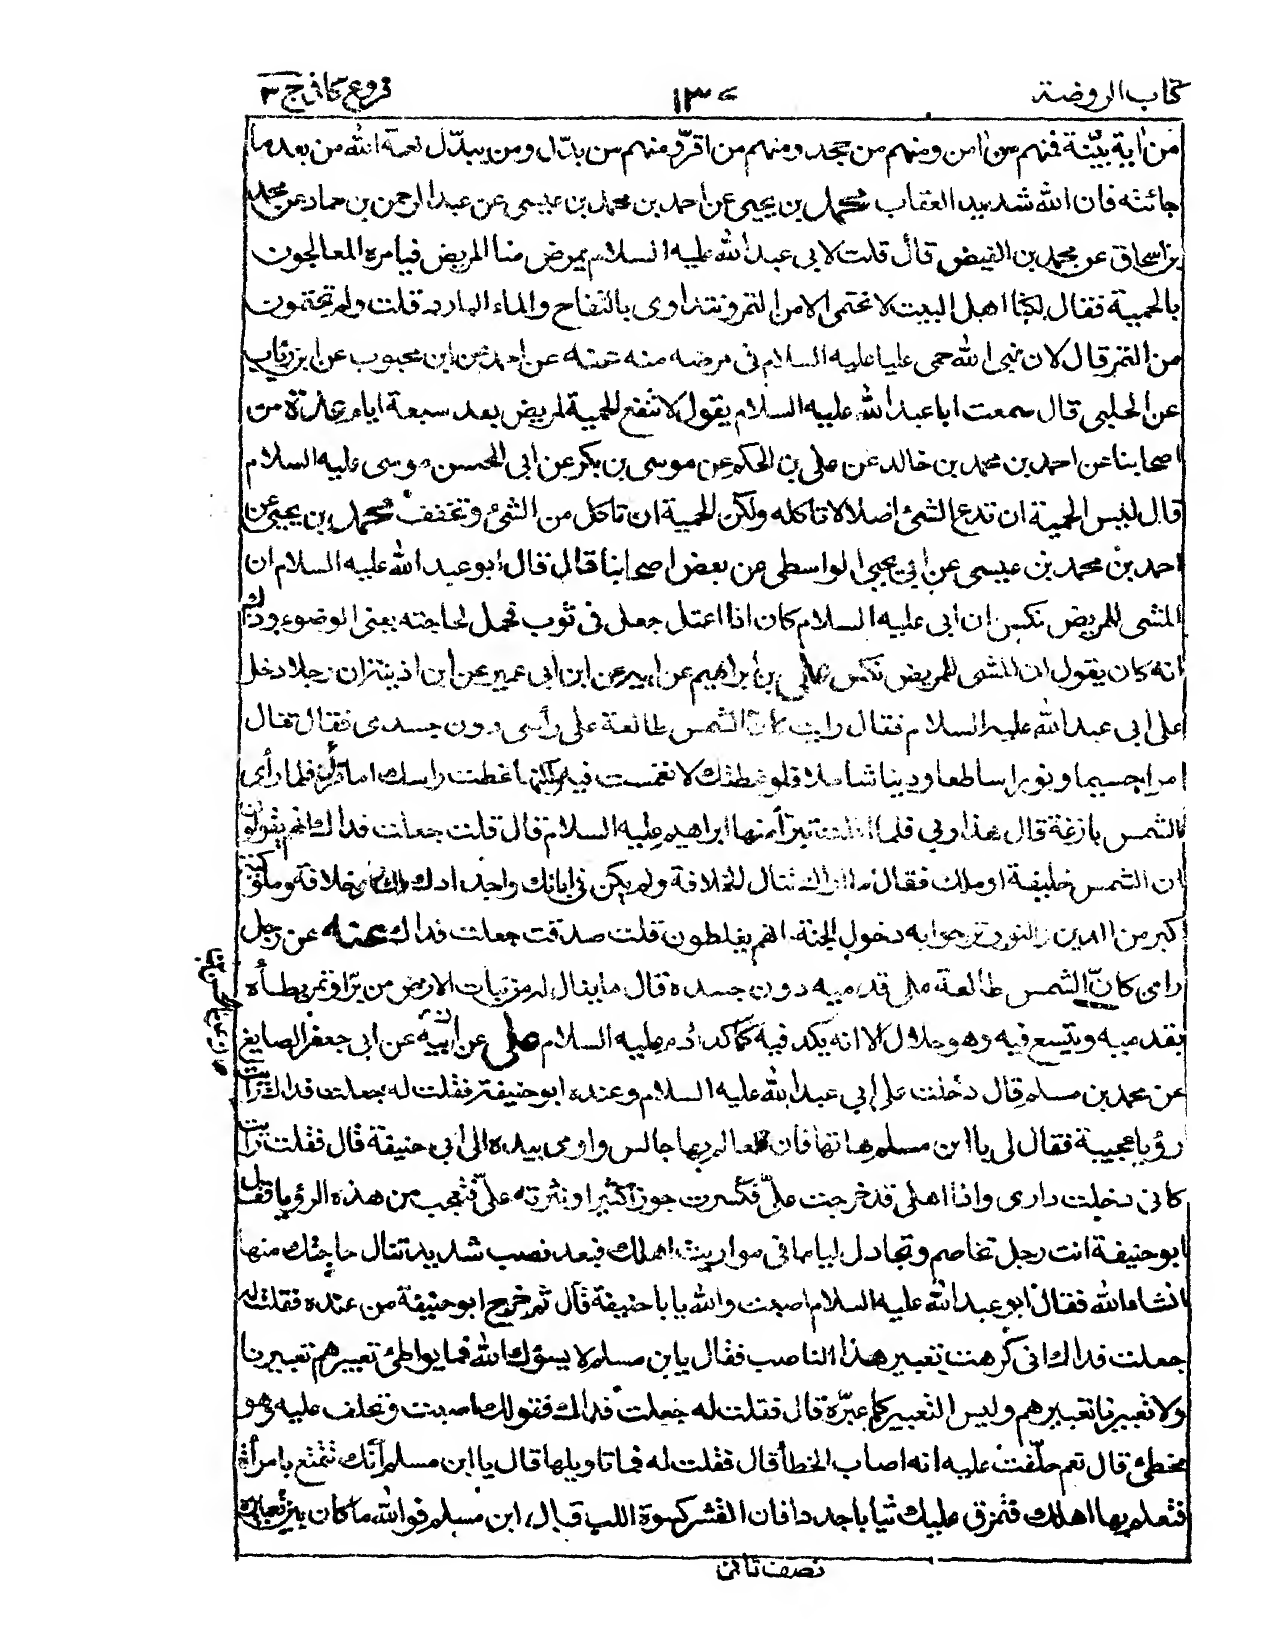 كتاب الروضة ١٣٧ فروع كافى ج ٣
من اية بيّنة فمنهم من امن ومنهم من جحد ومنهم من اقرّ ومنهم من بدّل ومن يبدّل نعمة الله من بعد ما
جائته فان الله شديد العقاب محمد بن يحيى عن احمد بن محمد بن عيسى عن عبد الرحمن بن حماد عن محمد
بن اسحاق عن محمد بن الفيض قال قلت لابى عبد الله عليه السلام يمرض منا المريض فيامره المعالجون
بالحمية فقال لكنا اهل البيت لا نحتمى الا من التمر ونتداوى بالتفاح والماء البارد قلت ولم تحتمون
من التمر قال لان نبى الله حمى عليا عليه السلام فى مرضه منه عنه عن احمد عن ابن محبوب عن ابن رئاب
عن الحلبى قال سمعت ابا عبد الله عليه السلام يقول لا تنفع الحمية لمريض بعد سبعة ايام عدة من
اصحابنا عن احمد بن محمد بن خالد عن على بن الحكم عن موسى بن بكر عن ابى الحسن موسى عليه السلام
قال ليس الحمية ان تدع الشئ اصلا لا تاكله ولكن الحمية ان تاكل من الشئ وتخفف محمد بن يحيى عن
احمد بن محمد بن عيسى عن ابى يحيى الواسطى عن بعض اصحابنا قال قال ابو عبد الله عليه السلام ان
المشى للمريض نكس ان ابى عليه السلام كان اذا اعتل جعل فى ثوب فحمل لحاجته يعنى الوضوء وذاك
انه كان يقول ان المشى للمريض نكس على بن ابراهيم عن ابيه عن ابن ابى عمير عن ابن اذينة ان رجلا دخل
على ابى عبد الله عليه السلام فقال رايت كانّ الشمس طالعة على رأسى دون جسدى فقال تنال
امرا جسيما ونورا ساطعا ودينا شاملا فلو غطتك لانغمست فيه ولكنها غطت راسك اما قرأت فلما رأى
الشمس بازغة قال هذا ربى فلما افلت تبرّأ منها ابراهيم عليه السلام قال قلت جعلت فداك انهم يقولون
ان الشمس خليفة او ملك فقال ما اراك تنال الخلافة ولم يكن فى ابائك واجدادك ملك واى خلافة وملوكية
اكبر من الدين والنور ترجوا به دخول الجنة انهم يغلطون قلت صدقت جعلت فداك عنه عن رجل
راى كانّ الشمس طالعة على قدميه دون جسده قال مال يناله من نبات الارض من برّ او تمر يطأه
بقدميه ويتسع فيه وهو حلال الا انه يكد فيه كما كد ادم عليه السلام على عن ابيه عن ابى جعفر الصايغ
عن محمد بن مسلم قال دخلت على ابى عبد الله عليه السلام وعنده ابو حنيفة فقلت له جعلت فداك رايت
رؤيا عجيبة فقال لى يا ابن مسلم هاتها فان العالم بها جالس واومى بيده الى ابى حنيفة قال فقلت رايت
كانى دخلت دارى واذا اهلى قد خرجت علىّ فكسرت جوزا كثيرا ونثرته علىّ فتعجبت من هذه الرؤيا فقال
ابو حنيفة انت رجل تخاصم وتجادل لياما فى مواريث اهلك فبعد نصب شديد تنال حاجتك منها
انشاء الله فقال ابو عبد الله عليه السلام اصبت والله يا با حنيفة قال ثم خرج ابو حنيفة من عنده فقلت له
جعلت فداك انى كرهت تعبير هذا الناصب فقال يا بن مسلم لا يسؤك الله فما يواطئ تعبيرهم تعبيرنا
ولا تعبيرنا تعبيرهم وليس التعبير كما عبّره قال فقلت له جعلت فداك فقولك اصبت وتحلف عليه وهو
مخطئ قال نعم حلّفت عليه انه اصاب الخطأ قال فقلت له فما تاويلها قال يا ابن مسلم انك تتمتع بامرأة
فتعلم بها اهلك فتمزق عليك ثيابا جددا فان القشر كسوة اللب قال ابن مسلم فوالله ما كان بين تعبيره
نصف ثانى